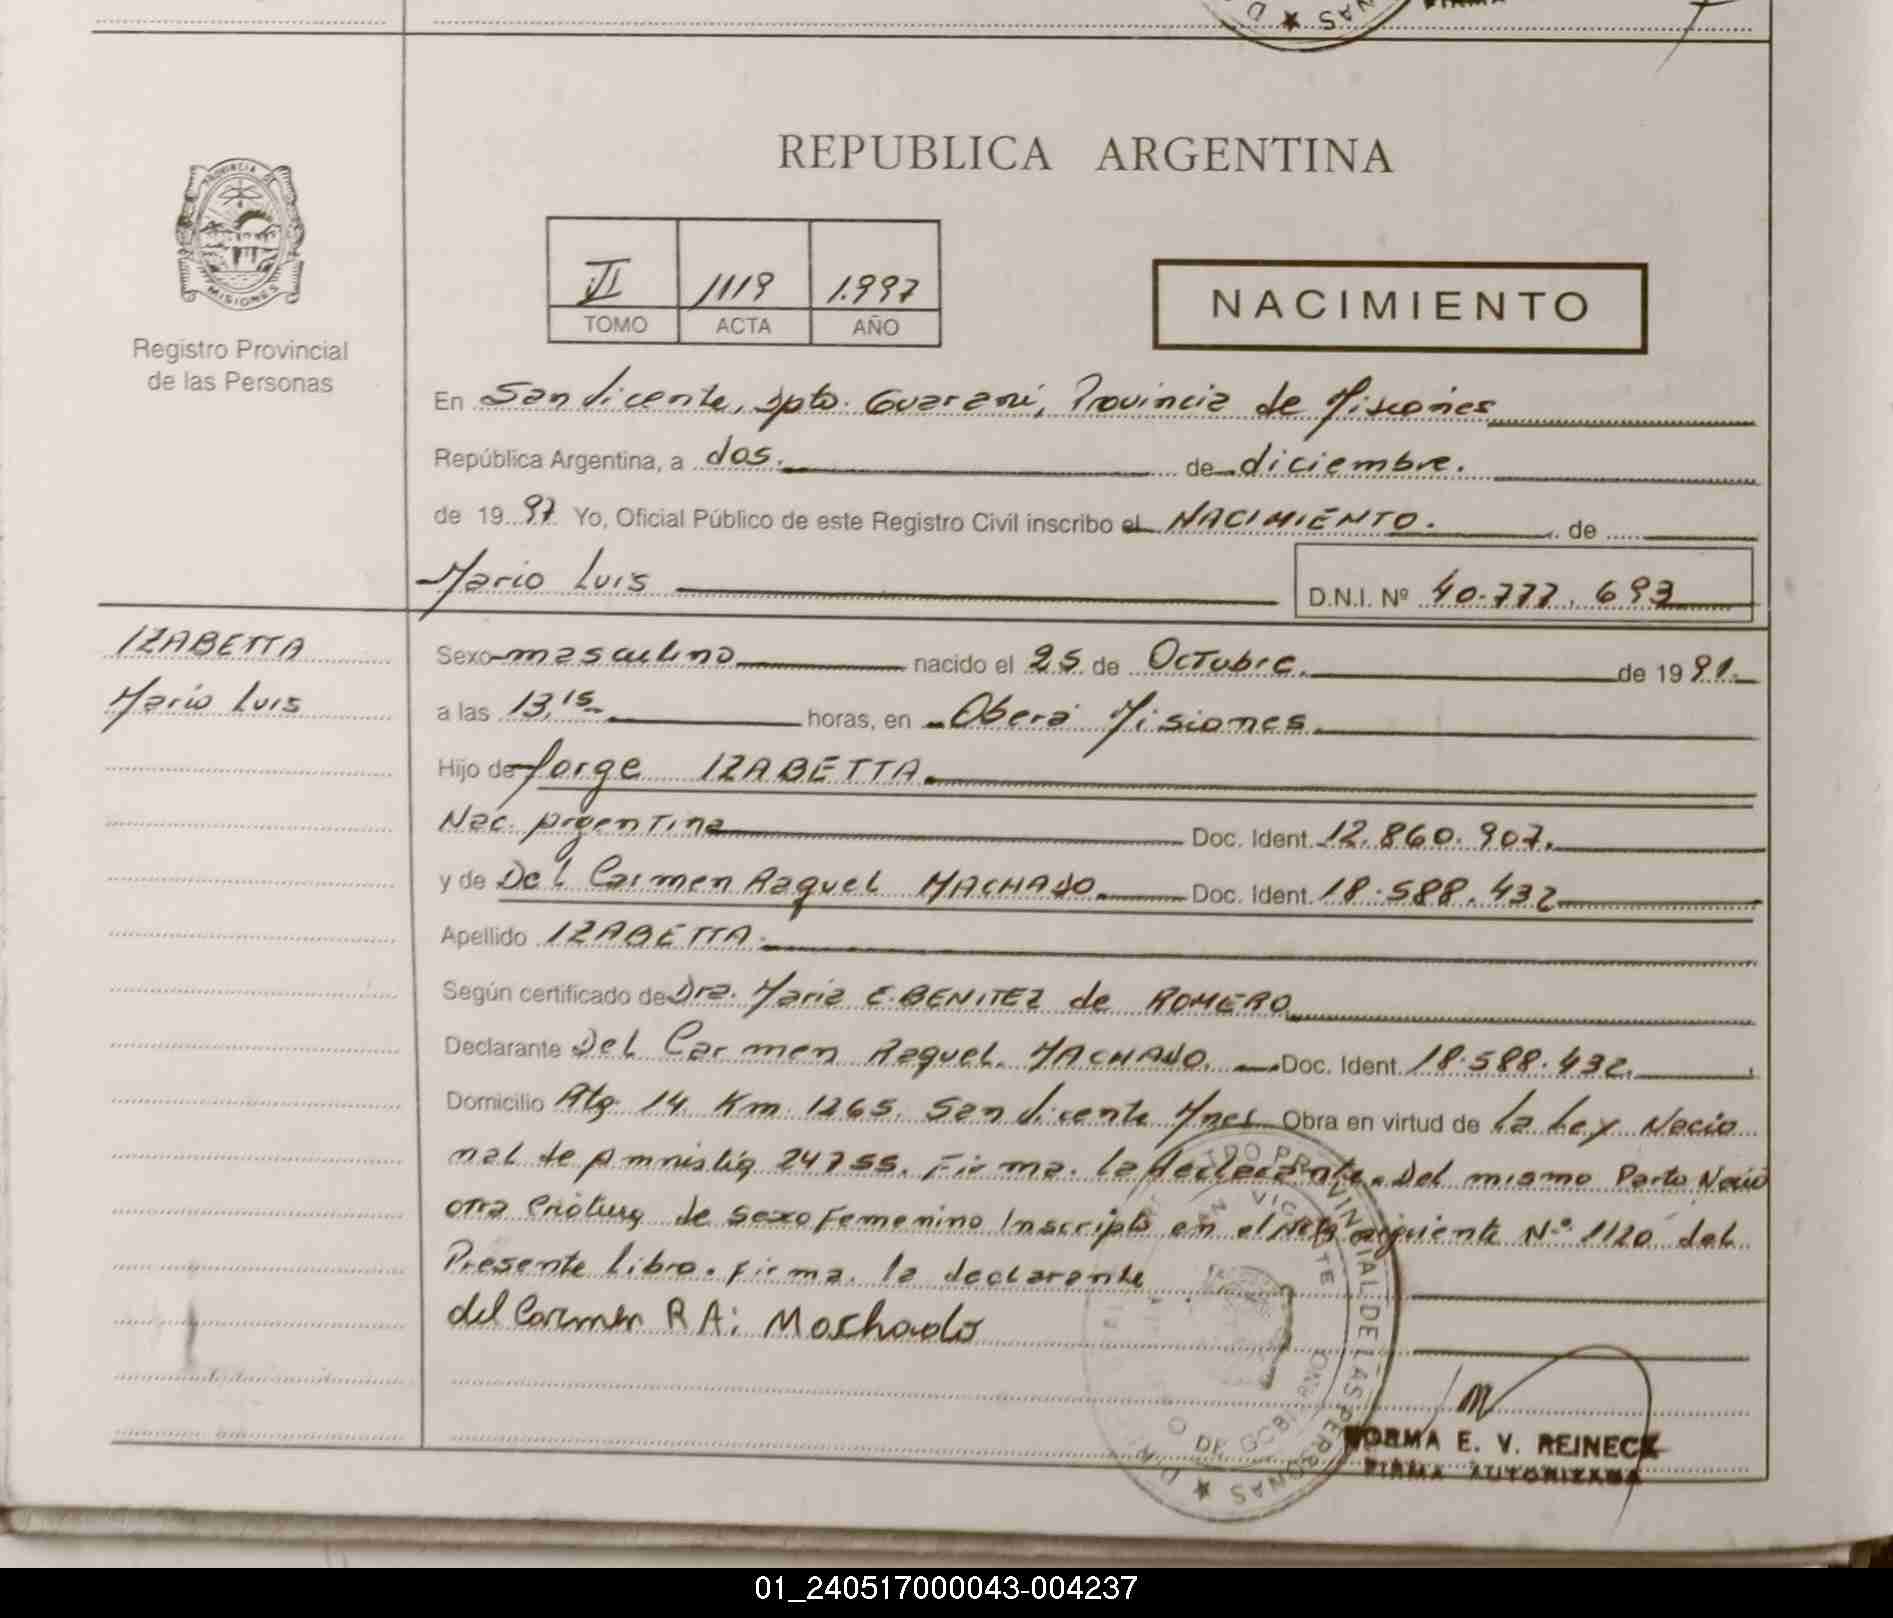 FIRMA
REPUBLICA ARGENTINA
PROVINCIA DE
MISIONES
Registro Provincial
de las Personas
VI 1119 1.997
TOMO ACTA AÑO
NACIMIENTO
En San Vicente, Dpto. Guaraní, Provincia de Misiones
República Argentina, a dos. de diciembre.
de 19 97 Yo, Oficial Público de este Registro Civil inscribo el NACIMIENTO. de
Mario Luis D.N.I. Nº 40.777.693
IZABETTA
Mario Luis
Sexo masculino nacido el 25 de Octubre. de 19 91.
a las 13,15 horas, en Oberá Misiones
Hijo de Jorge IZABETTA
Nac. Argentina Doc. Ident. 12.860.907.
y de Del Carmen Raquel MACHADO Doc. Ident. 18.588.432
Apellido IZABETTA.
Según certificado de Dra. Maria E. BENITEZ de ROMERO
Declarante Del Carmen Raquel MACHADO. Doc. Ident. 18.588.432.
Domicilio Rta 14 Km 1265. San Vicente Mnes. Obra en virtud de la Ley Nacio
nal de Amnistia 24755. Firma. la declarante. Del mismo Parto Nació
otra Criatura de sexo Femenino Inscripto en el Acta siguiente Nº 1120 del
Presente libro. Firma. la declarante
del Carmen R A: Machado
NORMA E. V. REINECK
FIRMA AUTORIZADA
01_240517000043-004237